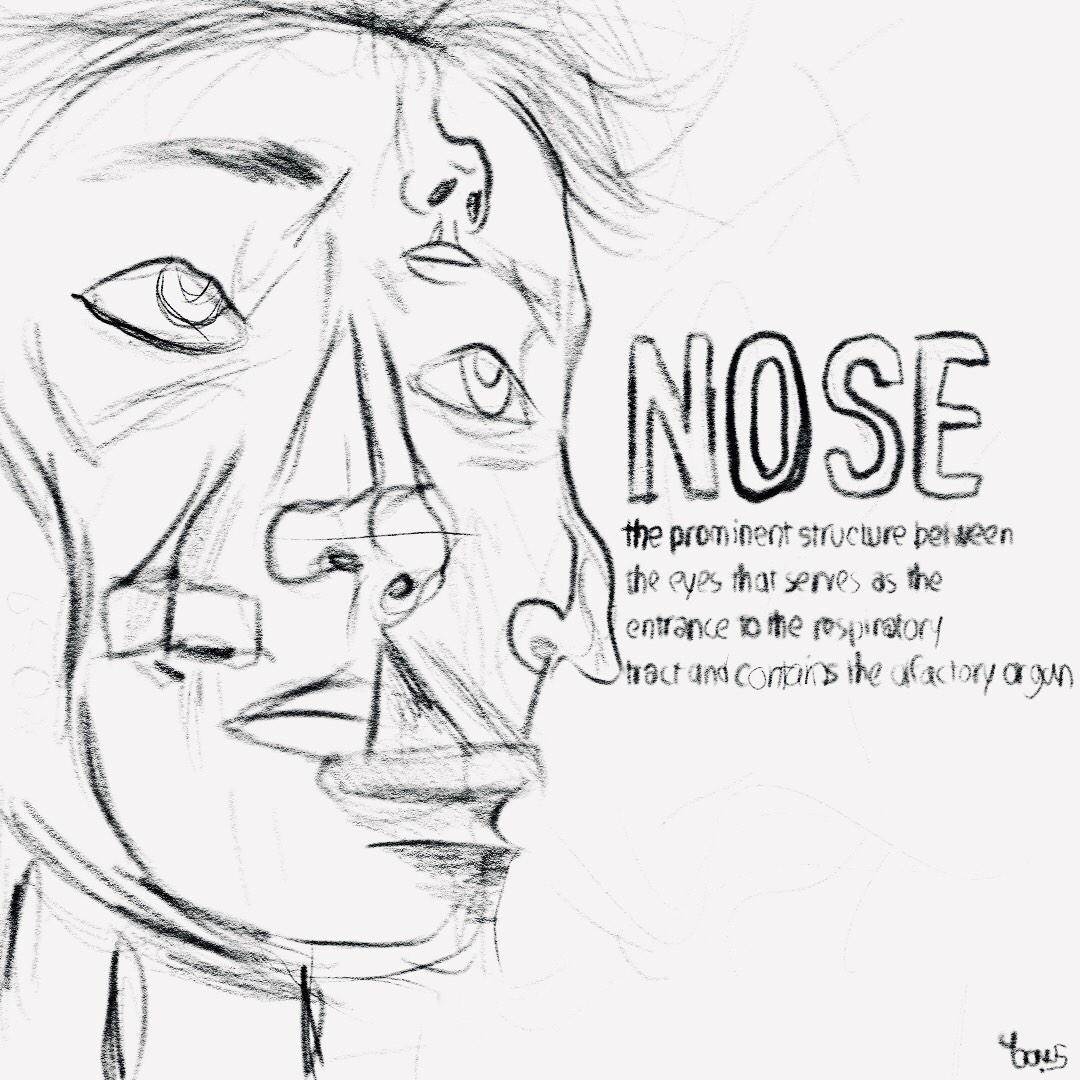 NOSE
the prominent structure between
the eyes that serves as the
entrance to the respiratory
tract and contains the olfactory organ